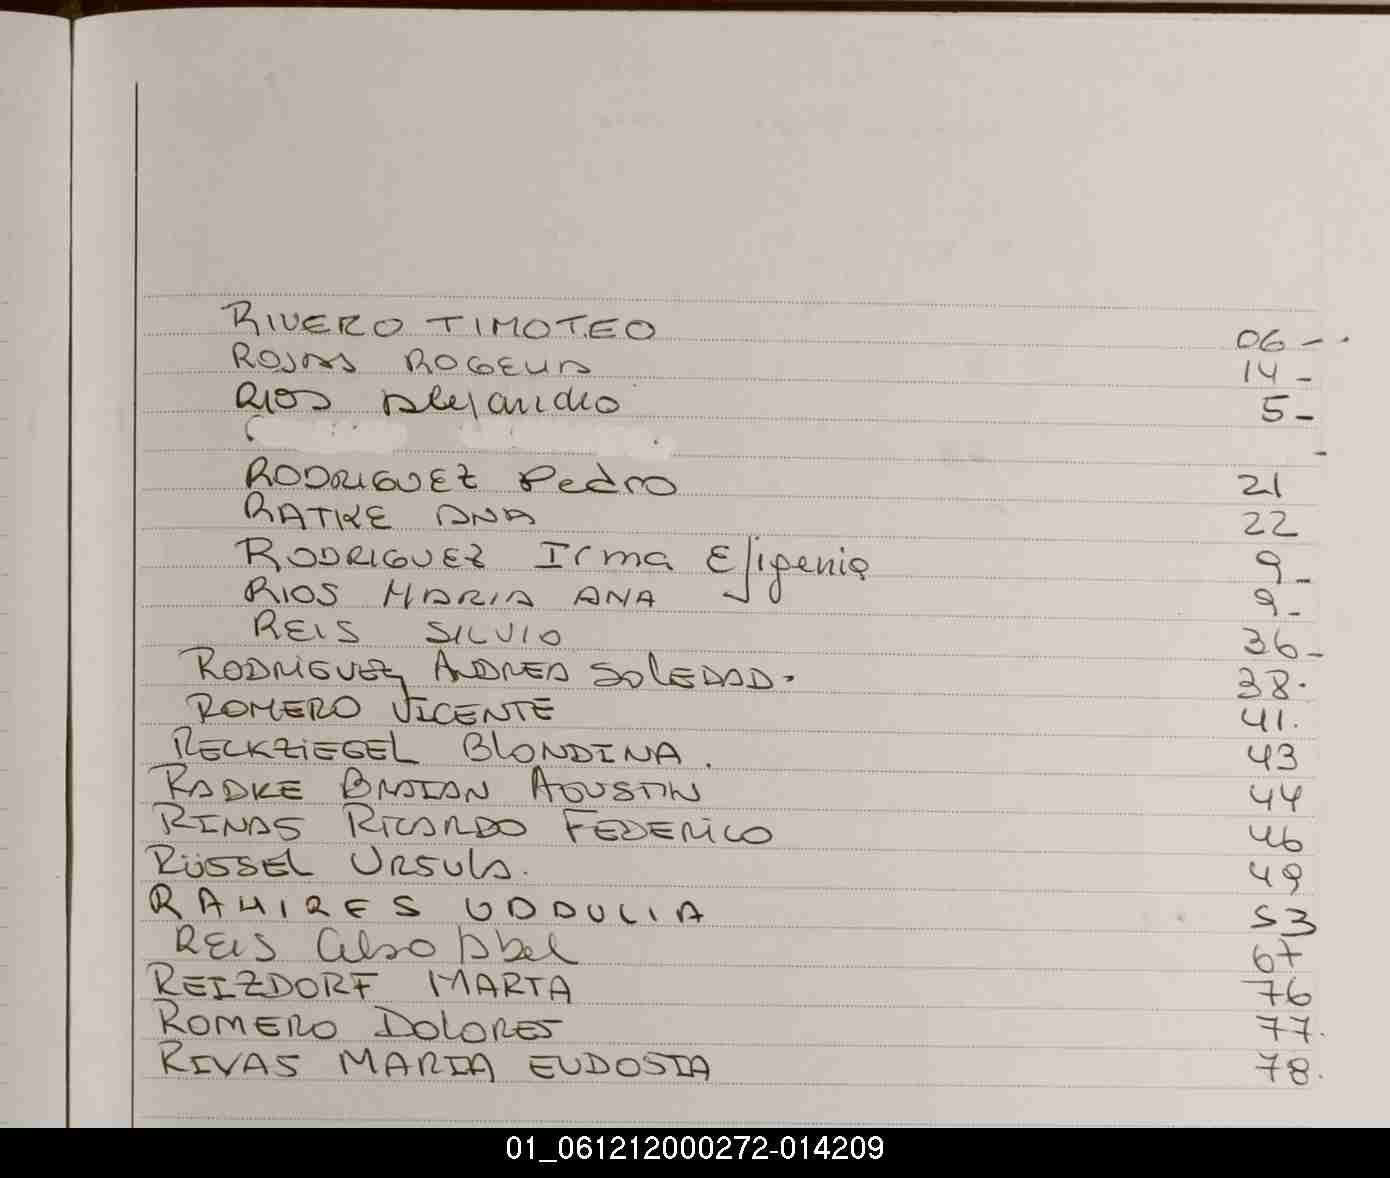 RIVERO TIMOTEO 06 -
ROJAS ROGELIA 14 -
RIOS Alejandro 5 -
RODRIGUEZ Pedro 21
RATKE ANA 22
RODRIGUEZ Irma Efigenia 9 -
RIOS MARIA ANA 9 -
REIS SILVIO 36 -
RODRIGUEZ ANDREA SOLEDAD. 38.
ROMERO VICENTE 41.
RECKZIEGEL BLONDINA. 43
RADKE BRAIAN AGUSTIN 44
RINAS RICARDO FEDERICO 46
RÜSSEL URSULA. 49
RAMIRES ODDULIA 53
REIS Celso Abel 67
REIZDORF MARTA 76
ROMERO DOLORES 77.
RIVAS MARIA EUDOSIA 78.
01_061212000272-014209